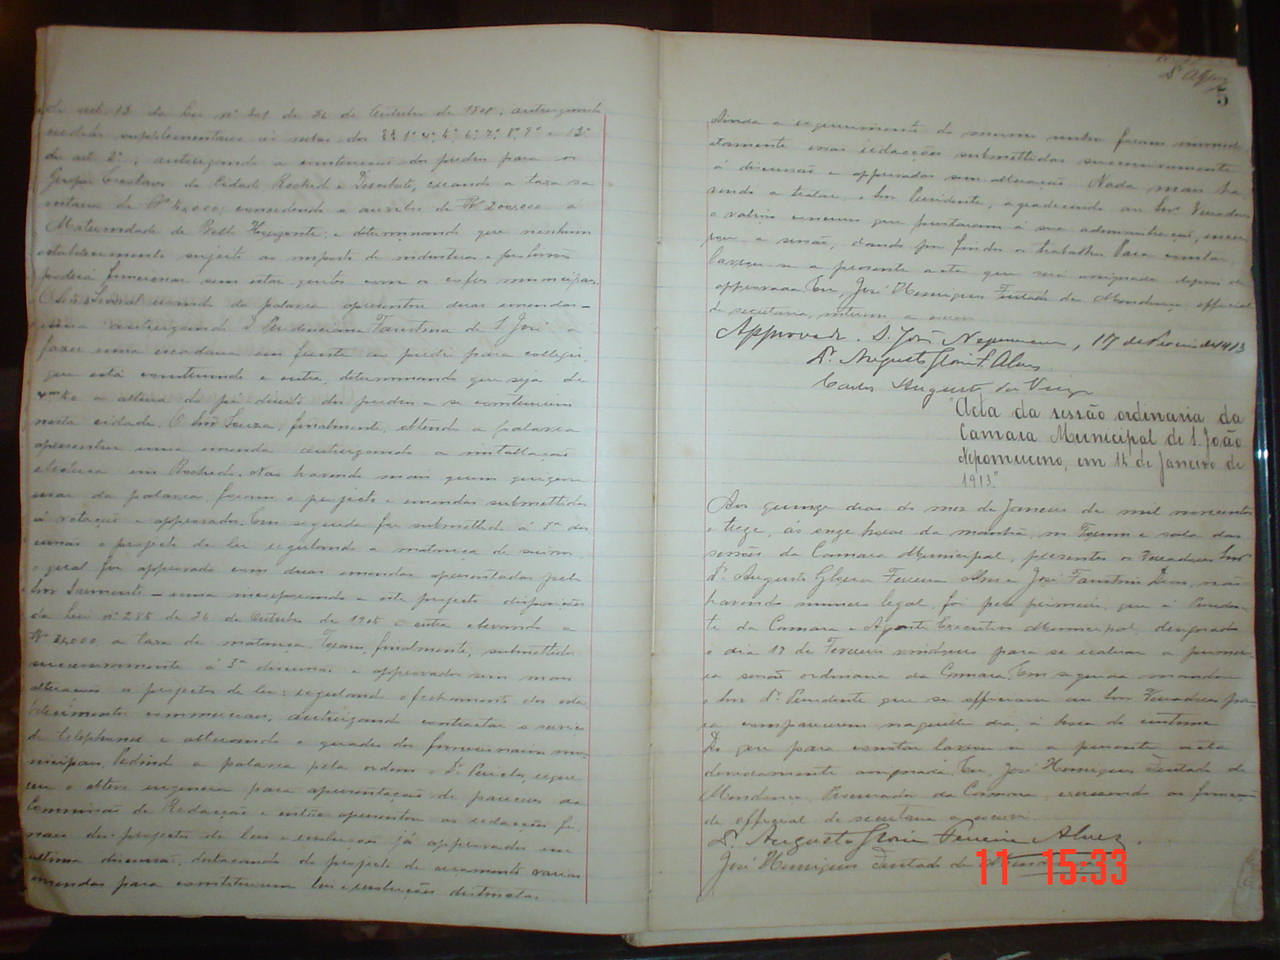 do art. 13 da Lei nº 301 de 26 de Outubro de autorizando
creditos supplementares ás verbas dos §§ 1º 4º 5º 6º 7º 8º e 12º
do art. 2º, autorizando a construcção dos predios para os
Grupos Escolares da Cidade, Rochedo e Descoberto, creando a taxa sa
nitaria de concedendo o auxilio de 200:000 á
Maternidade de Bello Horizonte; e determinando que nenhum
estabelecimento sujeito ao imposto de industrias e profissões
poderá funccionar sem estar quites com os cofres municipaes.
usando da palavra apresentou duas emendas –
uma autorizando Faustina de S. José a
fazer uma escadaria em frente ao predio para collegio,
que está construindo e outra, determinando que seja de
a altura do pé direito dos predios a se construirem
nesta cidade. O Snr Souza, finalmente, obtendo a palavra
apresentou uma emenda autorizando a installação
electrica em Rochedo. Não havendo mais quem quizesse
usar da palavra, foram o projecto e emendas submettidos
á votação e approvados. Em seguida foi submettido á 3ª dis
cussão o projecto de lei regulando a matança de suinos,
o qual foi approvado com duas emendas apresentadas pelo
Snr Sarmento – uma incorporando a este projecto disposições
da Lei nº 285 de 26 de Outubro de e outra elevando a
a taxa de matança. Foram, finalmente, submettidos
successivamente á 3ª discussão e approvados sem mais
alteração os projectos de lei: regulando o fechamento dos esta
belecimentos commerciaes, autorizando contractar o serviço
de telephones e alterando o quadro dos funccionarios mu
nicipaes. Pedindo a palavra pela ordem o Dr. reque
reu e obteve urgencia para apresentação de pareceres da
Commissão de Redacção e então apresentou as redacções fi
naes dos projectos de leis e resoluções já approvados em
ultima discussão, destacando do projecto de orçamento varias
emendas para constituirem leis e resoluções distinctas.
5
Ainda a requerimento do mesmo senhor foram immedi
atamente essas redacções submettidas successivamente
á discussão e approvadas sem alteração. Nada mais ha
vendo a tratar, o Snr Presidente, agradecendo aos Snrs Vereadores
o valioso concurso que prestaram á sua administração, encer
rou a sessão, dando por findos os trabalhos. Para constar,
lavrou-se a presente acta que será assignada depois de
approvada. Eu, José Henriques Furtado de Mendonça, official
de secretaria, interino a escrevi.
Approvada. S. João Nepomuceno, 17 de de 1913
Dr. Augusto Gloria F. Alves.
Carlos Augusto da Veiga
"Acta da sessão ordinaria da
Camara Municipal de S. João
Nepomuceno, em 15 de Janeiro de
1913"
Aos quinze dias do mez de Janeiro de mil novecentos
e treze, ás onze horas da manhã, no Forum e sala das
sessões da Camara Municipal, presentes os Vereadores Snrs
Dr. Augusto Gloria Ferreira Alves e José Faustino Dias, não
havendo numero legal, foi pelo primeiro, que é Presiden
te da Camara e Agente Executivo Municipal, designado
o dia 17 de Fevereiro vindouro para se realizar a primei
ra sessão ordinaria da Camara. Em seguida mandou
o Snr Dr. Presidente que se officiasse aos Snrs Vereadores pa
ra comparecerem naquelle dia, á hora do costume.
Do que para constar lavrou-se a presente acta
devidamente assignada. Eu, José Henriques Furtado de
Mendonça, Procurador da Camara, exercendo as funcções
de official de secretaria a escrevi.
Dr. Augusto Gloria Ferreira Alves.
José Henriques Furtado de
11 15:33